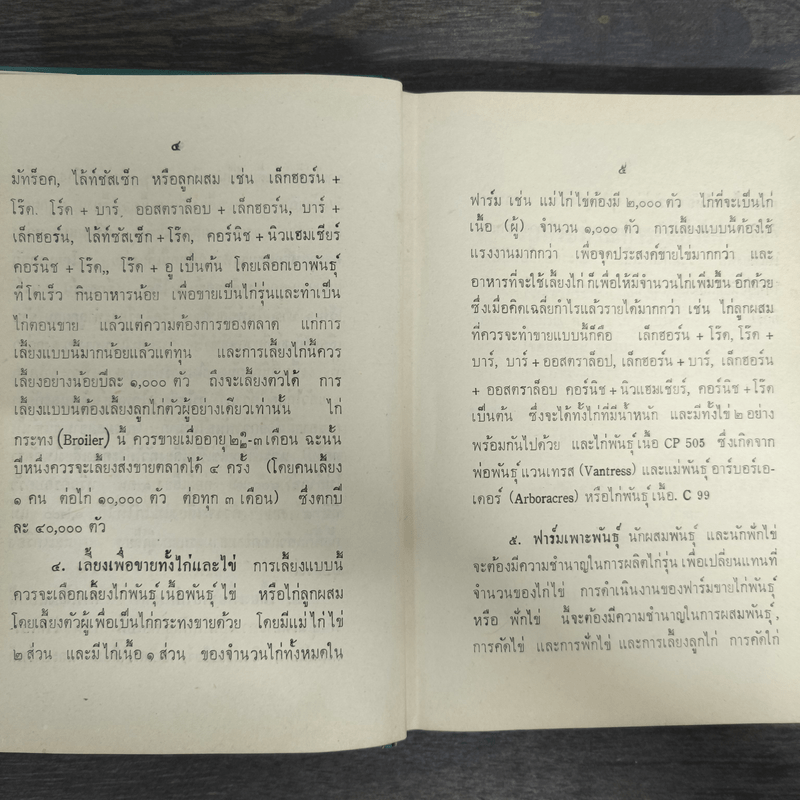 ๔
มัทร็อค, ไล้ท์ซัสเซ็ก หรือลูกผสม เช่น เล็กฮอร์น +
โร๊ด. โร๊ด + บาร์. ออสตราล็อบ + เล็กฮอร์น, บาร์ +
เล็กฮอร์น, ไล้ท์ซัสเซ็ก + โร๊ด, คอร์นิช + นิวแฮมเชียร์
คอร์นิช + โร๊ด,, โร๊ด + อู เป็นต้น โดยเลือกเอาพันธุ์
ที่โตเร็ว กินอาหารน้อย เพื่อขายเป็นไก่รุ่นและทำเป็น
ไก่ตอนขาย แล้วแต่ความต้องการของตลาด แก่การ
เลี้ยงแบบนี้มากน้อยแล้วแต่ทุน และการเลี้ยงไก่นี้ควร
เลี้ยงอย่างน้อยปีละ ๑,๐๐๐ ตัว ถึงจะเลี้ยงตัวได้ การ
เลี้ยงแบบนี้ต้องเลี้ยงลูกไก่ตัวผู้อย่างเดียวเท่านั้น ไก่
กระทง (Broiler) นี้ ควรขายเมื่ออายุ -๓ เดือน ฉะนั้น
ปีหนึ่งควรจะเลี้ยงส่งขายตลาดได้ ๔ ครั้ง (โดยคนเลี้ยง
๑ คน ต่อไก่ ๑๐,๐๐๐ ตัว ต่อทุก ๓ เดือน) ซึ่งตกปี
ละ ๔๐,๐๐๐ ตัว
๔. เลี้ยงเพื่อขายทั้งไก่และไข่ การเลี้ยงแบบนี้
ควรจะเลือกเลี้ยงไก่พันธุ์เนื้อพันธุ์ไข่ หรือไก่ลูกผสม
โดยเลี้ยงตัวผู้เพื่อเป็นไก่กระทงขายด้วย โดยมีแม่ไก่ไข่
๒ ส่วน และมีไก่เนื้อ ๑ ส่วน ของจำนวนไก่ทั้งหมดใน
๕
ฟาร์ม เช่น แม่ไก่ไข่ต้องมี ๒,๐๐๐ ตัว ไก่ที่จะเป็นไก่
เนื้อ (ผู้) จำนวน ๑,๐๐๐ ตัว การเลี้ยงแบบนี้ต้องใช้
แรงงานมากกว่า เพื่อจุดประสงค์ขายไข่มากกว่า และ
อาหารที่จะใช้เลี้ยงไก่ ก็เพื่อให้มีจำนวนไก่เพิ่มขึ้นอีกด้วย
ซึ่งเมื่อคิดเฉลี่ยกำไรแล้วรายได้มากกว่า เช่น ไก่ลูกผสม
ที่ควรจะทำขายแบบนี้ก็คือ เล็กฮอร์น + โร๊ด, โร๊ด +
บาร์, บาร์ + ออสตราล็อป, เล็กฮอร์น + บาร์, เล็กฮอร์น
+ ออสตราล็อบ คอร์นิช + นิวแฮมเชียร์, คอร์นิช + โร๊ด
เป็นต้น ซึ่งจะได้ทั้งไก่ที่มีน้ำหนัก และมีทั้งไข่ ๒ อย่าง
พร้อมกันไปด้วย และไก่พันธุ์เนื้อ CP 505 ซึ่งเกิดจาก
พ่อพันธุ์แวนเทรส (Vantress) และแม่พันธุ์อาร์บอร์เอ-
เคอร์ (Arboracres) หรือไก่พันธุ์เนื้อ. C 99
๕. ฟาร์มเพาะพันธุ์ นักผสมพันธุ์ และนักฟักไข่
จะต้องมีความชำนาญในการผลิตไก่รุ่น เพื่อเปลี่ยนแทนที่
จำนวนของไก่ไข่ การดำเนินงานของฟาร์มขายไก่พันธุ์
หรือ ฟักไข่ นี้จะต้องมีความชำนาญในการผสมพันธุ์,
การคัดไข่ และการฟักไข่ และการเลี้ยงลูกไก่ การคัดไก่